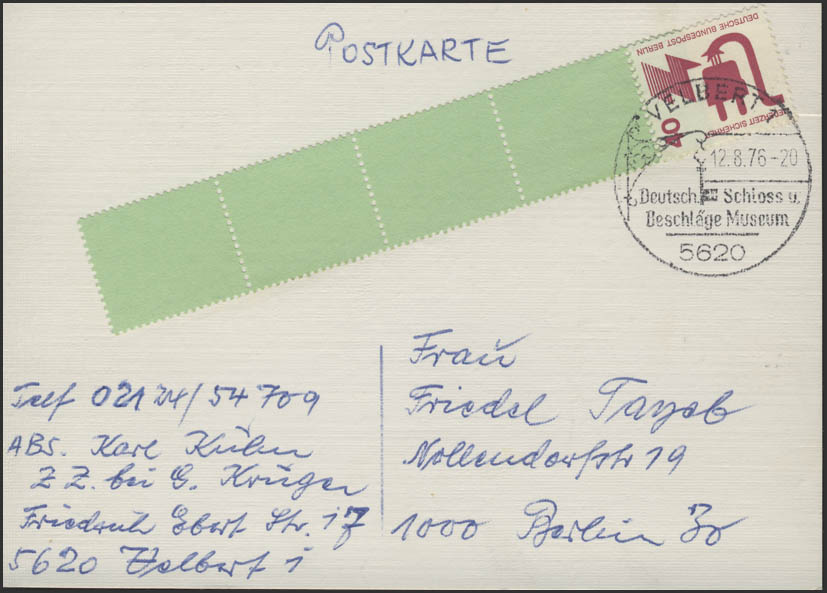 POSTKARTE
DEUTSCHE BUNDESPOST BERLIN
40
VELBERT 1
12.8.76-20
Deutsch. Schloss u.
Beschläge Museum
5620
Frau
Friedel Tayeb
Nollendorfstr 19
1000 Berlin 30
Telf 02124/54709
ABS. Karl Kühn
z Z. bei G. Krüger
Friedrich Ebert Str. 17
5620 Velbert 1